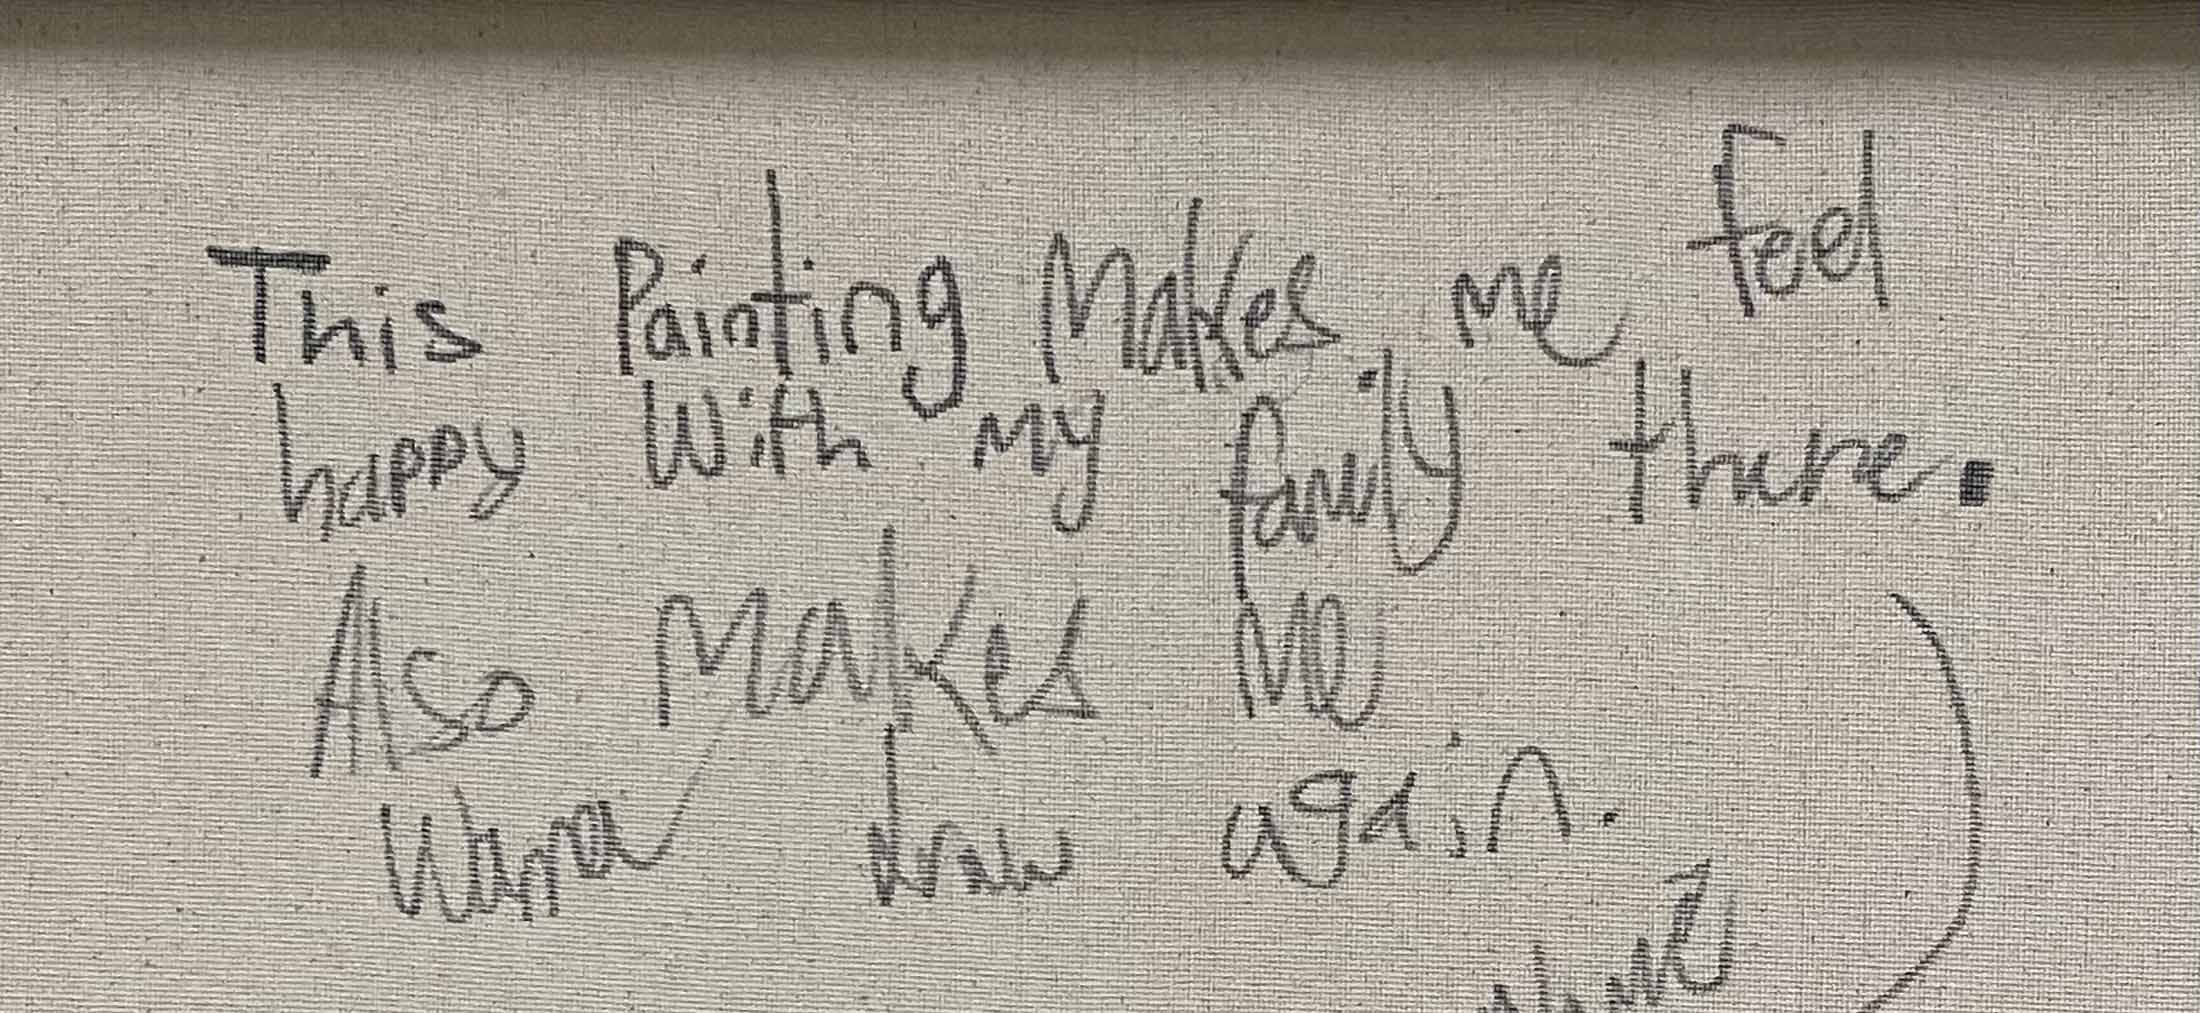 This Painting Makes me feel
happy With my family thure.
Also Makes Me
Wanna draw again.